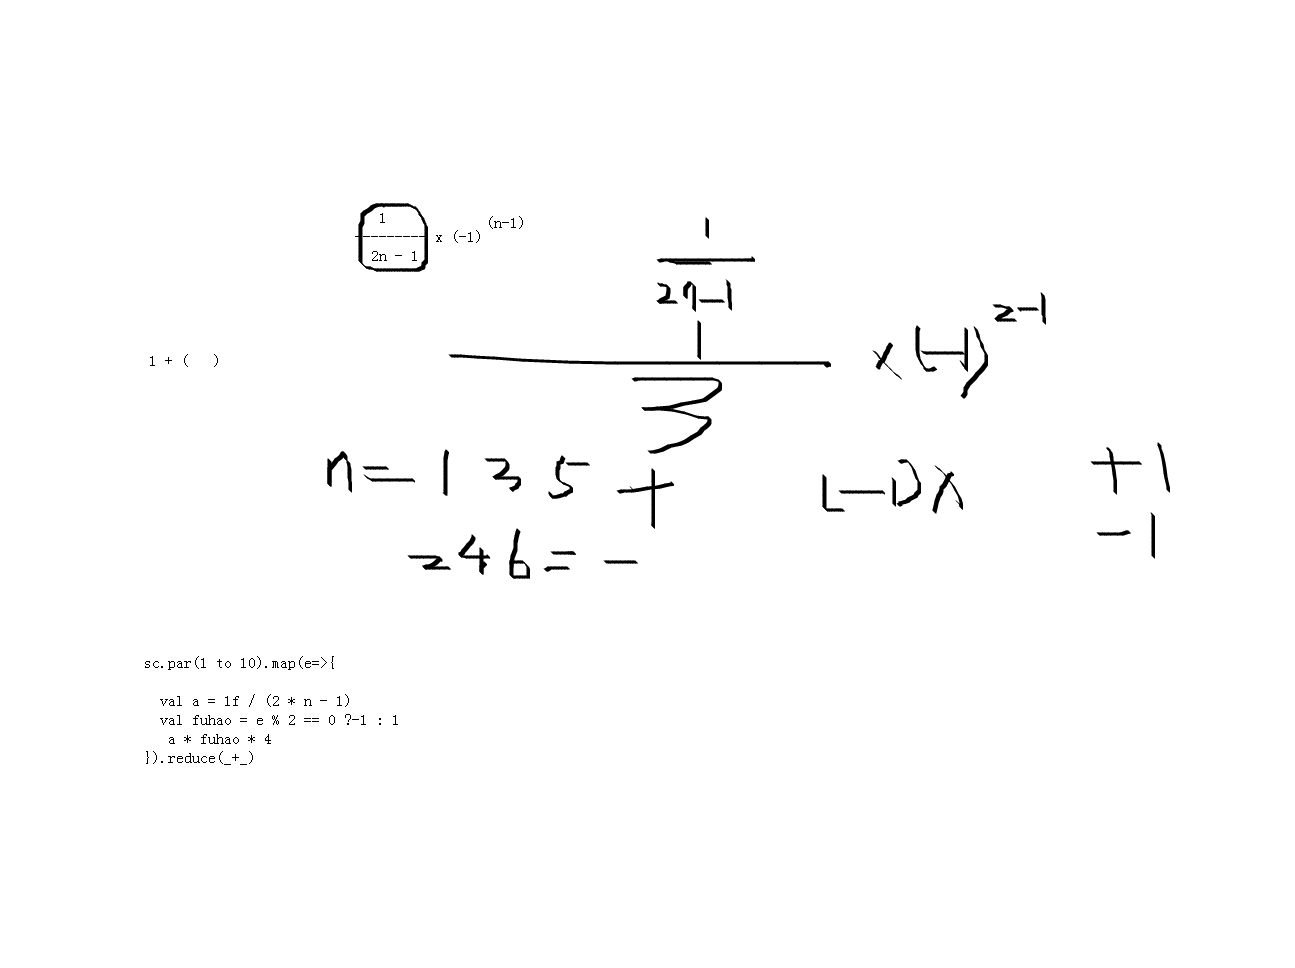 1
---------
2n - 1
x (-1)
(n-1)
1
2n-1
1
3
x (-1)
2-1
1 + (   )
n = 1 3 5 +
(-1) x
+1
-1
2 4 6 = -
sc.par(1 to 10).map(e=>{
val a = 1f / (2 * n - 1)
val fuhao = e % 2 == 0 ?-1 : 1
a * fuhao * 4
}).reduce(_+_)